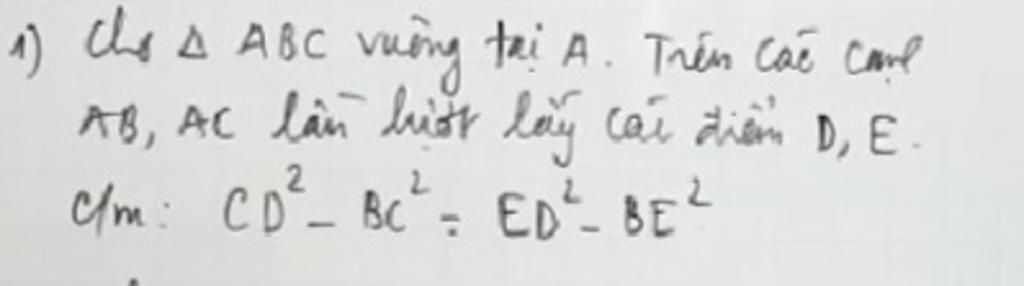 1) Cho Δ ABC vuông tại A. Trên các cạnh
AB, AC lần lượt lấy các điểm D, E.
C/m: CD² - BC² = ED² - BE²